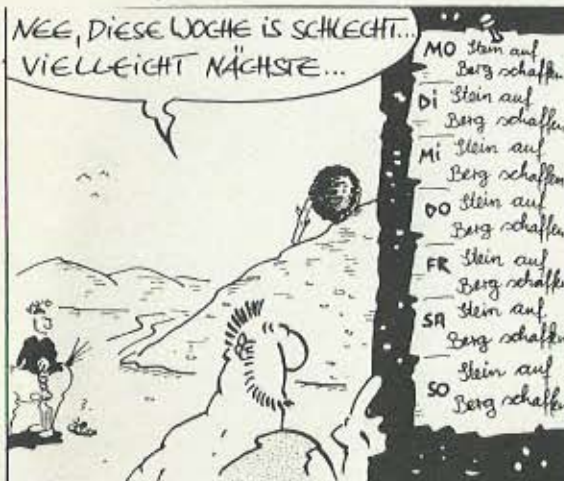 NEE, DIESE WOCHE IS SCHLECHT...
VIELLEICHT NÄCHSTE...
MO Stein auf
Berg schaffen
DI Stein auf
Berg schaffen
MI Stein auf
Berg schaffen
DO Stein auf
Berg schaffen
FR Stein auf
Berg schaffen
SA Stein auf
Berg schaffen
SO Stein auf
Berg schaffen